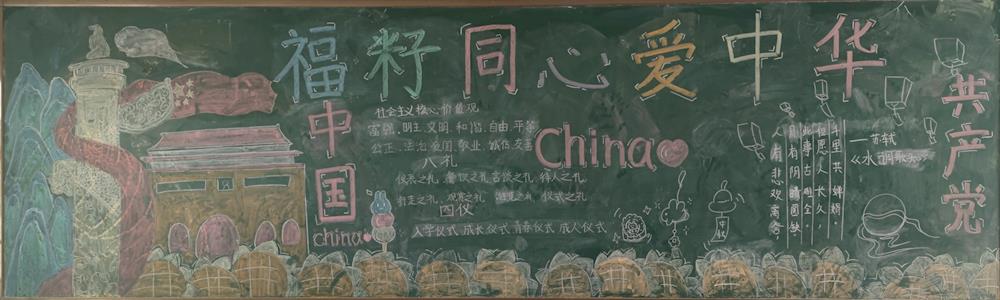 福籽同心爱中华
中国
china
社会主义核心价值观
富强、明主、文明、和谐、自由、平等
公正、法治、爱国、敬业、诚信、友善
八礼
仪表之礼、餐饮之礼、言谈之礼、待人之礼、
行走之礼、观赏之礼、游览之礼、仪式之礼
四仪
入学仪式 成长仪式 青春仪式 成人仪式
China
中秋
人有悲欢离合,
月有阴晴圆缺
此事古难全。
但愿人长久,
千里共婵娟。
——苏轼
《水调歌头》
共产党